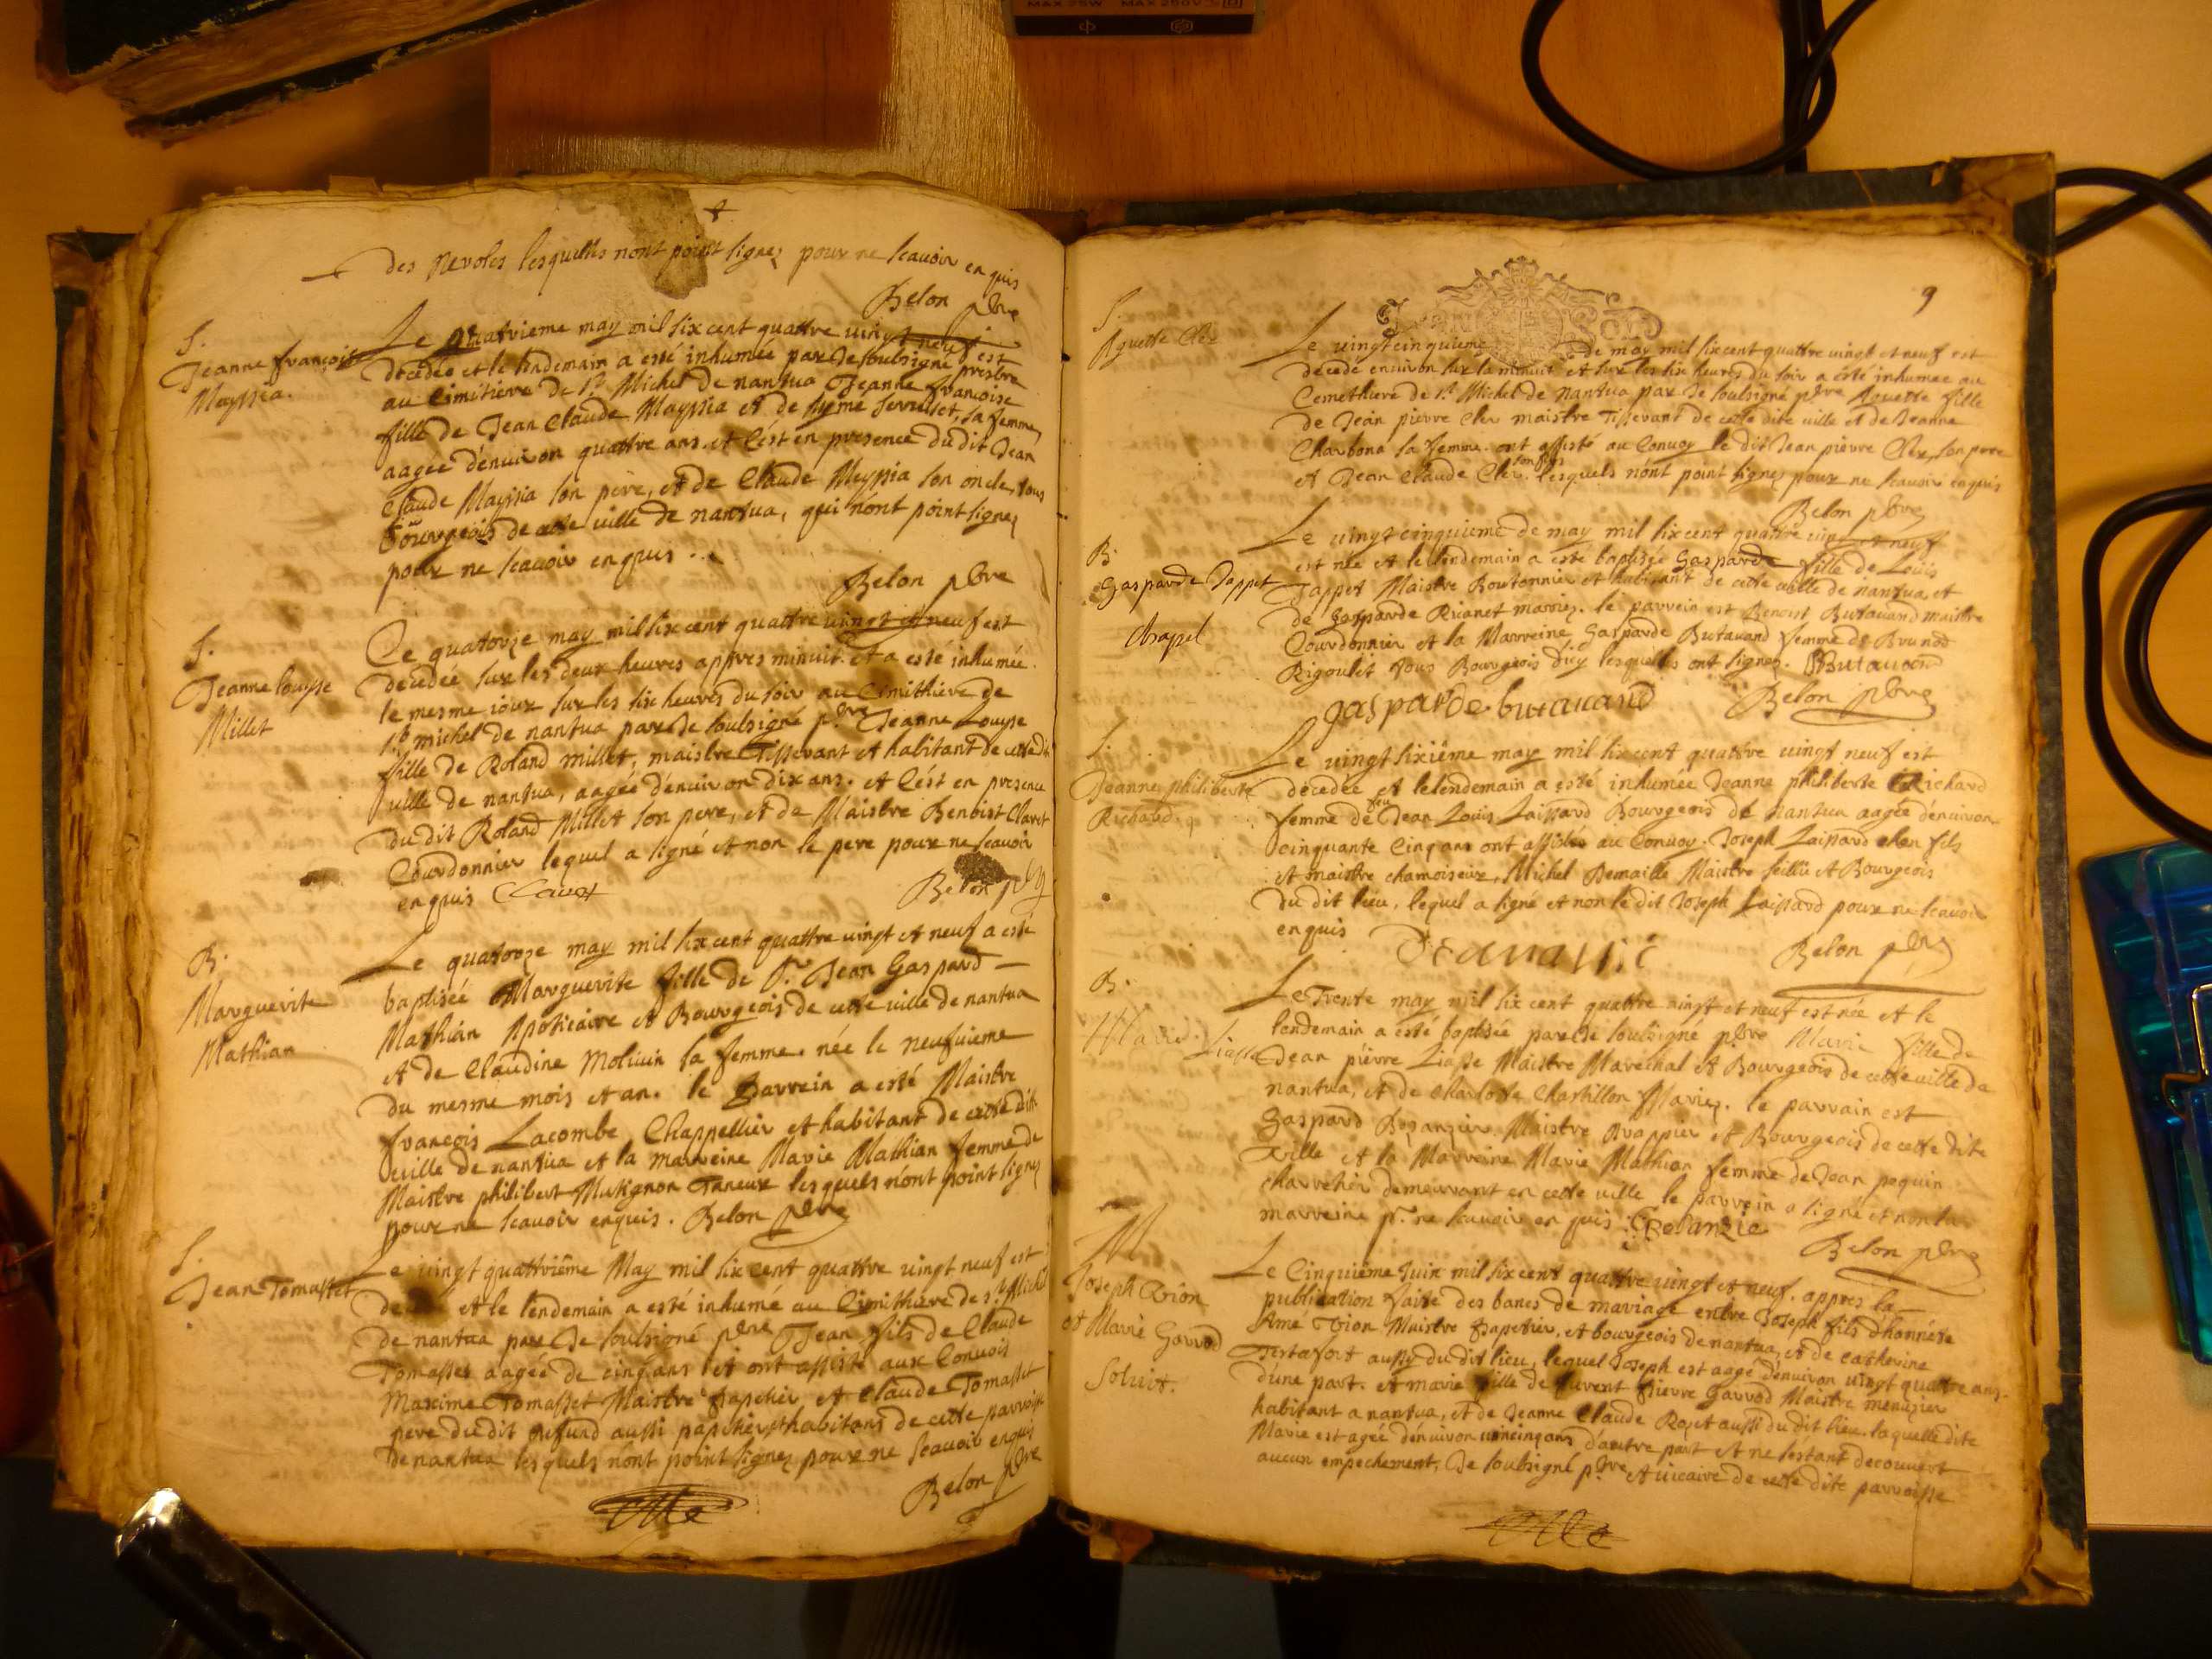 MAX 75W MAX 250V
des nevoles lesquelles nont point signez pour ne scavoir enquis
Belon pbre
S.
Jeanne françoise
Mayssia.
Le quatrieme may mil six cent quattre vingt neuf est
decedée et le lendemain a esté inhumée par Je soubsigné presbre
au Cimitiere de St Michel de nantua Jeanne françoise
fille de Jean Claude Mayssia et de sa femme,
aagée d'environ quattre ans. et C'est en presence dudit Jean
Claude Mayssia son pere, et de Claude Mayssia son oncle, tous
Bourgeois de cette ville de nantua, qui n'ont point signez
pour ne scavoir enquis
Belon pbre
S.
Jeanne Louyse
Millet
Le quatorze may mil six cent quattre vingt et neuf est
decedée sur les deux heures appres minuit. et a esté inhumée
le mesme iour sur les six heures du soir au Cimithiere de
St michel de nantua par Je soubsigné pbre Jeanne Louyse
fille de Roland millet, maistre Tisserant et habitant de cette dte
ville de nantua, aagée d'environ dix ans. et C'est en presence
du dit Roland Millet son pere, et de Maistre Benoist Claret
Courdonnier lequel a signé et non le pere pour ne scavoir
enquis Claret
Belon pbre
B.
Marguerite
Mathian
Le quatorze may mil six cent quattre vingt et neuf a esté
baptisée Marguerite fille de Sr. Jean Gaspard
Mathian Apoticaire et Bourgeois de cette ville de nantua
et de Claudine Molinin sa femme. née le neufuieme
du mesme mois et an. le Parrein a esté Maistre
françois Lacombe Chappellier et habitant de cette dite
ville de nantua et la marreine Marie Mathian femme de
Maistre philibert Mutignon Taneur lesquels n'ont point signez
pour ne scavoir enquis. Belon pbre
S.
Jean Tomasset
Le vingt quattriême May mil six cent quattre vingt neuf est
et le lendemain a esté inhumé au Cimithiere de st Michel
de nantua par Je soubsigné pbre Jean fils de Claude
Tomasset aagée de cinq ans et ont assisté aux Convois
Maxime Tomasset Maistre papetier et Claude Tomasset
pere du dit defund aussi papetier et habitans de cette parroisse
de nantua lesquels n'ont point signez pour ne scavoir enquis
Belon pbre
9
S.
Aguette Cler
Le vingtcinquieme de may mil six cent quattre vingt et neuf est
decedé environ sur la minuit et sur les six heures du soir a esté inhumee au
Cemethiere de St Michel de nantua par Je soubsigné pbre Aguette fille
de Jean pierre Cler maistre Tisserant de cette dite ville et de Jeanne
Charbona sa femme. ont assisté au Convoy le dit Jean pierre Cler, son pere
et Jean Claude Cler son fils lesquels n'ont point signez pour ne scavoir enquis
Belon pbre
B.
Gasparde Jappet
Chapel
Le vingt cinquieme de may mil six cent quattre vingt neuf
est née et le lendemain a esté baptisée Gasparde fille de Loüis
Jappet Maistre Boutonnier et habitant de cette ville de nantua, et
de gasparde Ricanet mariez. le parrein est Benoist Butavand maistre
Courdonnier et la Marreine Gasparde Butavand femme de Brunod
Rigoulet tous Bourgeois d'icy lesquelles ont signez. BButavand
gasparde butauand
Belon pbre
S.
Jeanne philiberte
Richard
Le vingt sixiême may mil six cent quattre vingt neuf est
decedée et le lendemain a esté inhumée Jeanne philiberte Richard
femme de feu Jean Louis Laissard Bourgeois de nantua aagée d'environ
cinquante Cinq ans ont assistés au Convoy. Joseph Laissard son fils
et maistre chamoiseur, Michel Demaille Maistre Bourgeois
du dit lieu, lequel a signé et non le dit Joseph Laissard pour ne scavoir
enquis
Belon pbre
B.
Marie Liasse
Le Trente may mil six cent quattre vingt et neuf est née et le
lendemain a esté baptisée par Je soubsigné pbre Marie fille de
Jean pierre Liasse Maistre Marechal et Bourgeois de cette ville de
nantua, et de Charlotte Chastillon Mariez. le parrain est
Gaspard Maistre Drappier et Bourgeois de cette dite
Ville et la Marreine Marie Mathian femme de Jean poquin
charretier demeurant en cette ville le parrein a signé et non la
marreine pr. ne scavoir en quis
Belon pbre
M
Joseph Vion
et Marie Garrod
Soluit.
Le Cinquiême Juin mil six cent quattre vingt et neuf. appres la
publication faite des bancs de mariage entre Joseph fils d'honnéste
Amé Vion Maistre papetier, et bourgeois de nantua, et de catherine
Testafort aussy du dit lieu, lequel Joseph est aagé d'environ vingt quattre ans
d'une part. et marie fille de Laurent pierre Garrod Maistre menuzier
habitant a nantua, et de Jeanne Claude Rozet aussi du dit lieu. laquelle dite
Marie est agée d'environ vincinq ans d'autre part et ne s'estant decouvert
aucun empechement, Je soubsigné pbre et vicaire de cette dite parroisse